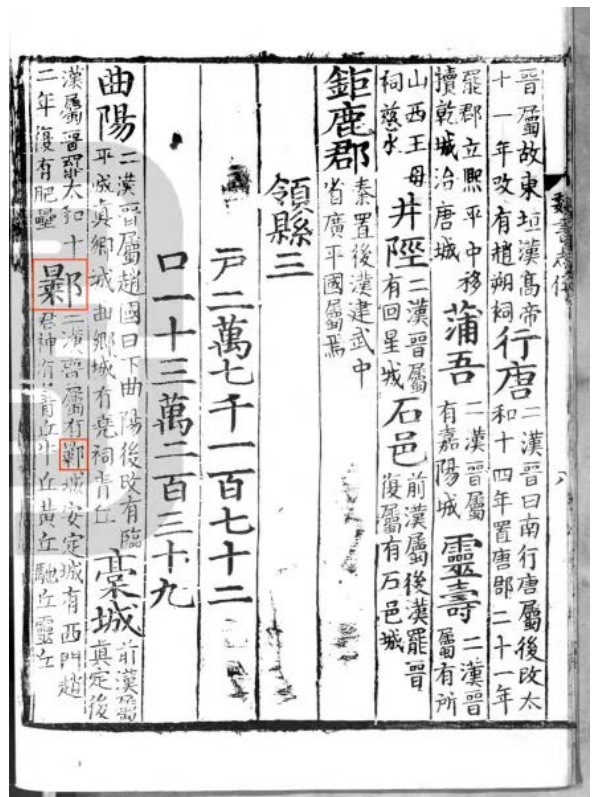 晉屬故東垣漢髙帝十一年改有趙朔祠行唐二漢晉曰南行唐屬後改太和十四年置唐郡二十一年
罷郡立熙平中移犢乾城治唐城蒲吾二漢晉屬有嘉陽城靈壽二漢晉屬有所
山西王母祠慈水井陘二漢晉屬有回星城石邑前漢屬後漢罷晉復屬有石邑城
鉅鹿郡秦置後漢建武中省廣平國屬焉
領縣三
戸二萬七千一百七十二
口一十三萬二百三十九
曲陽二漢晉屬趙國曰下曲陽後改有臨平城真鄉城曲鄉城有堯祠青丘槀城前漢屬真定後
漢屬晉罷太和十二年復有肥壘鄡二漢晉屬有鄡城安定城有西門趙君神有青丘牛丘黃丘馳丘靈丘